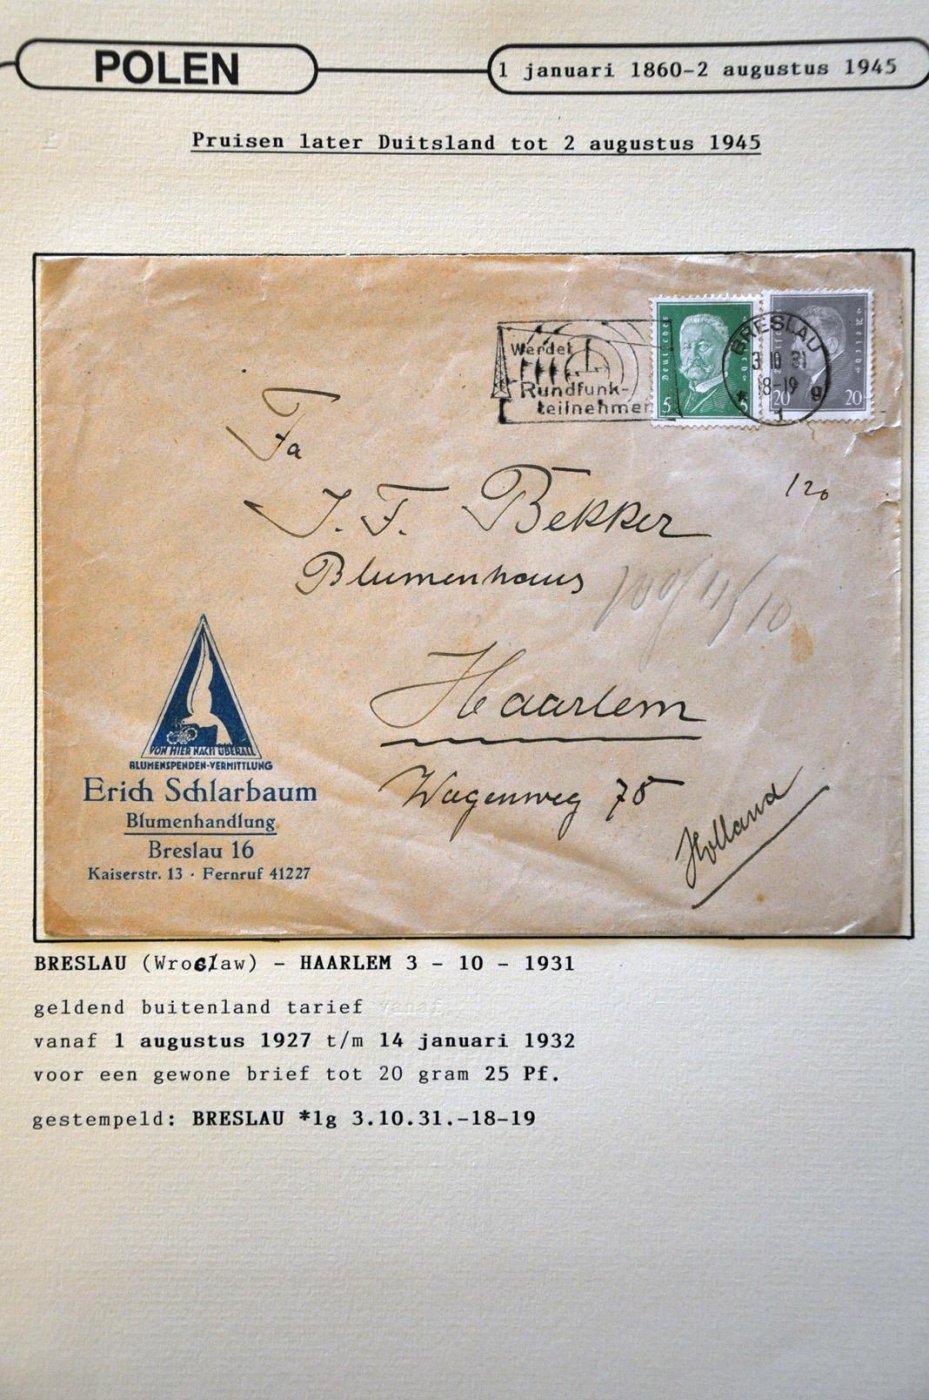 POLEN
1 januari 1860-2 augustus 1945
Pruisen later Duitsland tot 2 augustus 1945
Werdet
Rundfunk-
teilnehmer
Deutsches
5
5
BRESLAU
3 10 31
18-19
* g
1
20
20
Fa
J. F. Bekker
120
Blumenhaus
Haarlem
Wagenweg 75
Holland
VON HIER NACH ÜBERALL
BLUMENSPENDEN-VERMITTLUNG
Erich Schlarbaum
Blumenhandlung
Breslau 16
Kaiserstr. 13 · Fernruf 41227
BRESLAU (Wrocław) - HAARLEM 3 - 10 - 1931
geldend buitenland tarief
vanaf 1 augustus 1927 t/m 14 januari 1932
voor een gewone brief tot 20 gram 25 Pf.
gestempeld: BRESLAU *1g 3.10.31.-18-19